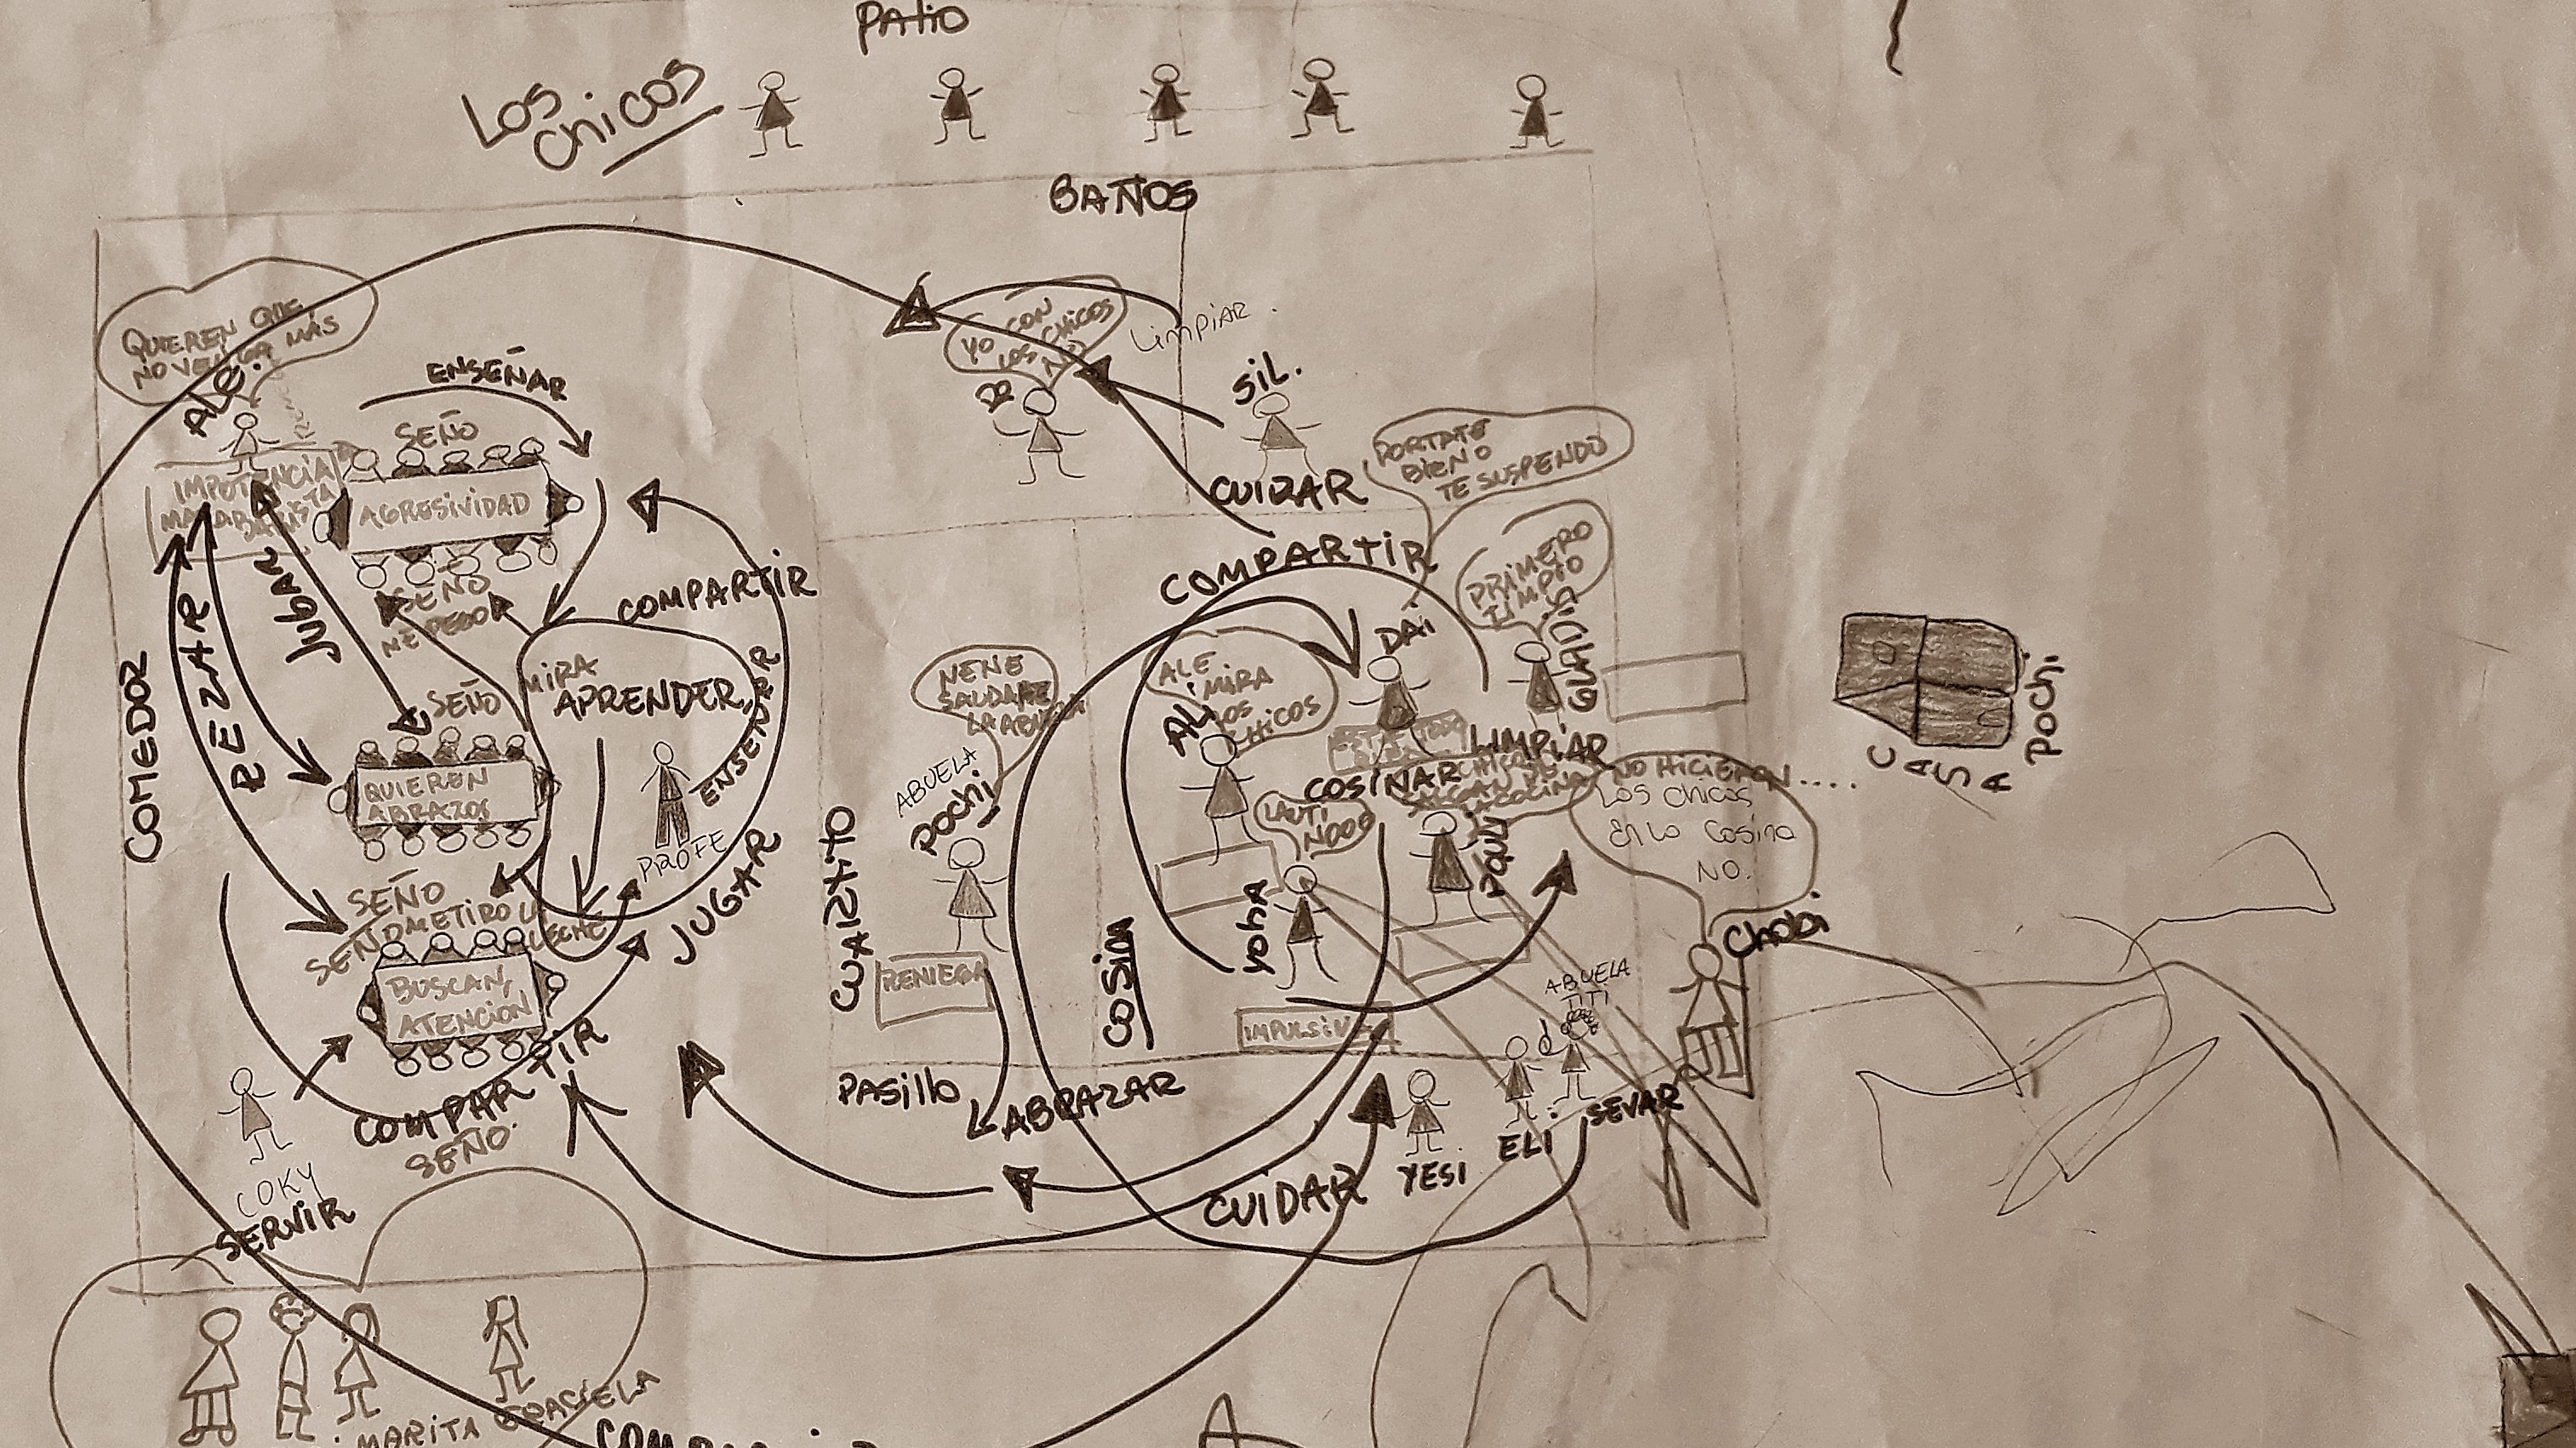 PATIO
LOS
CHICOS
BAÑOS
QUIEREN QUE
NO VENGA MÁS
ALE.
ENSEÑAR
SEÑO
IMPOTENCIA
AGRESIVIDAD
SEÑO
ME PEGO
YO CON
LOS CHICOS
NO
LIMPIAR.
SIL.
CUIDAR
PORTATE
BIEN O
TE SUSPENDO
PRIMERO
LIMPIO
COMPARTIR
COMPARTIR
COMEDOR
REZAR
JUGAR
MIRA
APRENDER
ENSEÑAR
PROFE
SEÑO
QUIEREN
ABRAZOS
JUGAR
SEÑO
SEÑO ME TIRO LA
LECHE
BUSCAN,
ATENCION
COMPARTIR
SEÑO.
COKY
SERVIR
MARITA
GRACIELA
NENE
SALUDAME
LA ABUELA
ABUELA
POCHI
RENIEGA
CUARTITO
PASILLO
ABRAZAR
COSINA
ALE
MIRA
LOS
CHICOS
ALI
DAI
GLADIS
LIMPIAR
COSINAR
CHICOS
SALGAN DE
LA COCINA
LAUTI
NOOO
YOHA
PAQUI
IMPULSIVA
NO HICIERON....
LOS CHICOS
EN LA COSINA
NO.
CHOBI
ABUELA
TITI
SEVAR
ELI
YESI
CUIDAR
CASA
POCHI.